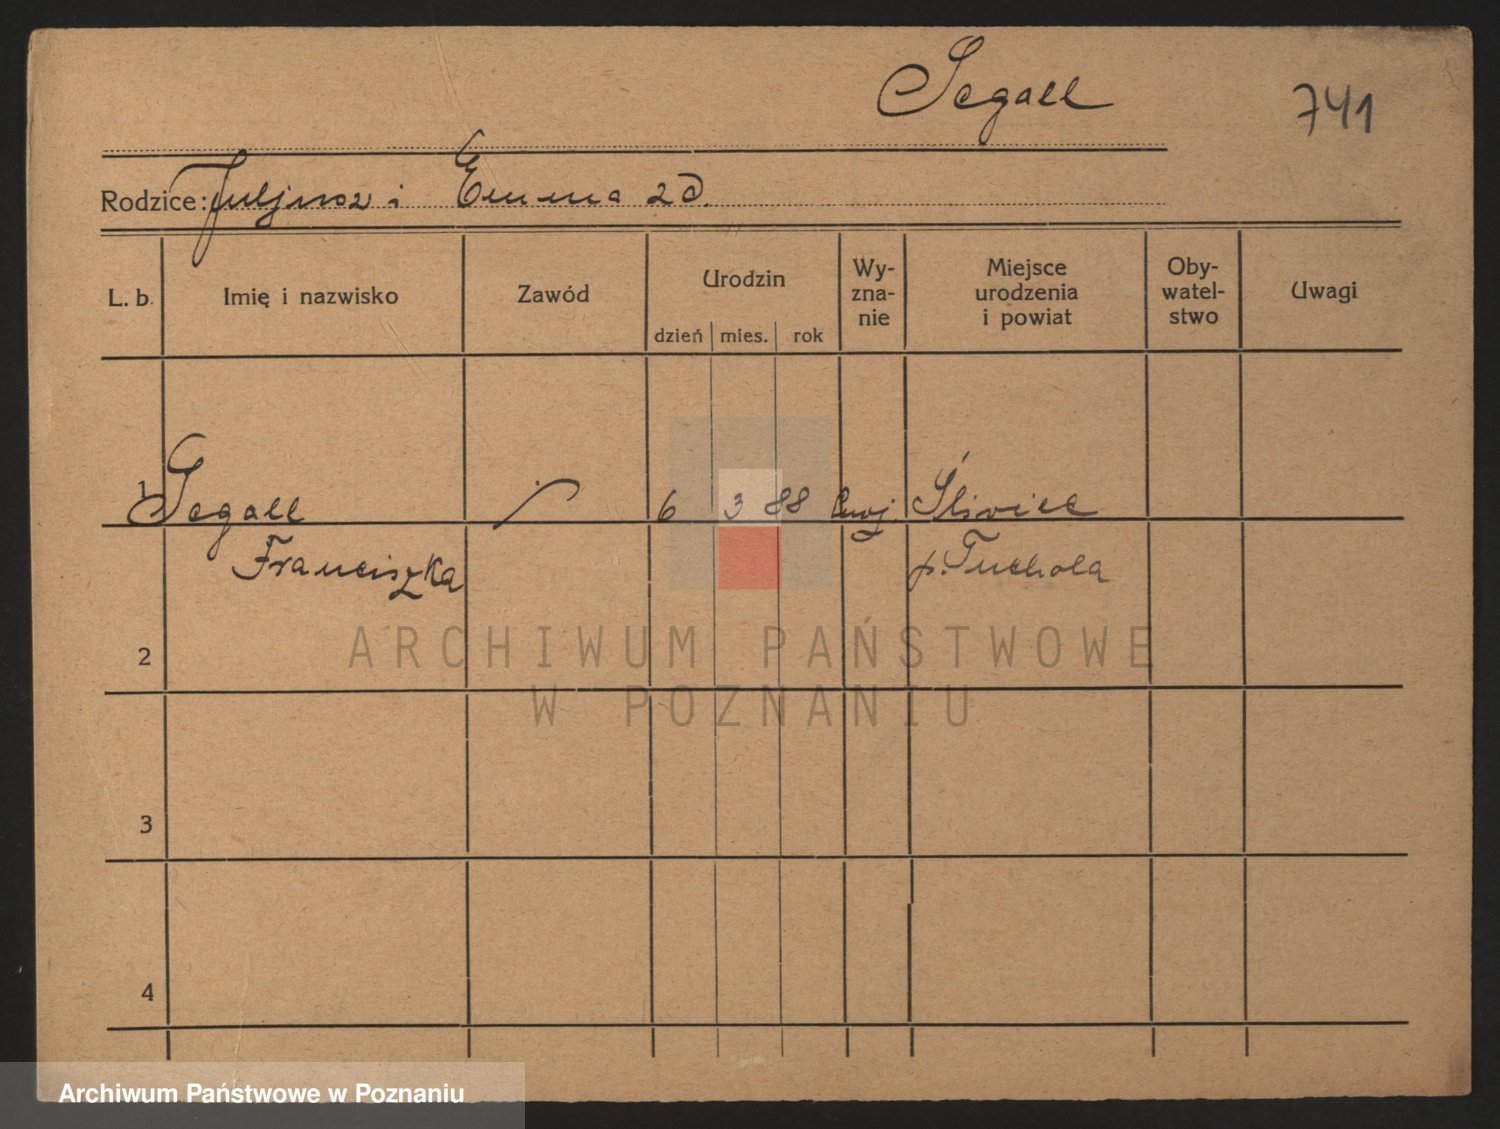 Segall
741
Rodzice: Juljusz i Emma zd.
L. b.
Imię i nazwisko
Zawód
Urodzin
dzień mies. rok
Wy-
zna-
nie
Miejsce
urodzenia
i powiat
Oby-
watel-
stwo
Uwagi
1 Segall 6 3 88 Śliwice
Franciszka p. Tuchola
2
3
4
ARCHIWUM PAŃSTWOWE
W POZNANIU
Archiwum Państwowe w Poznaniu